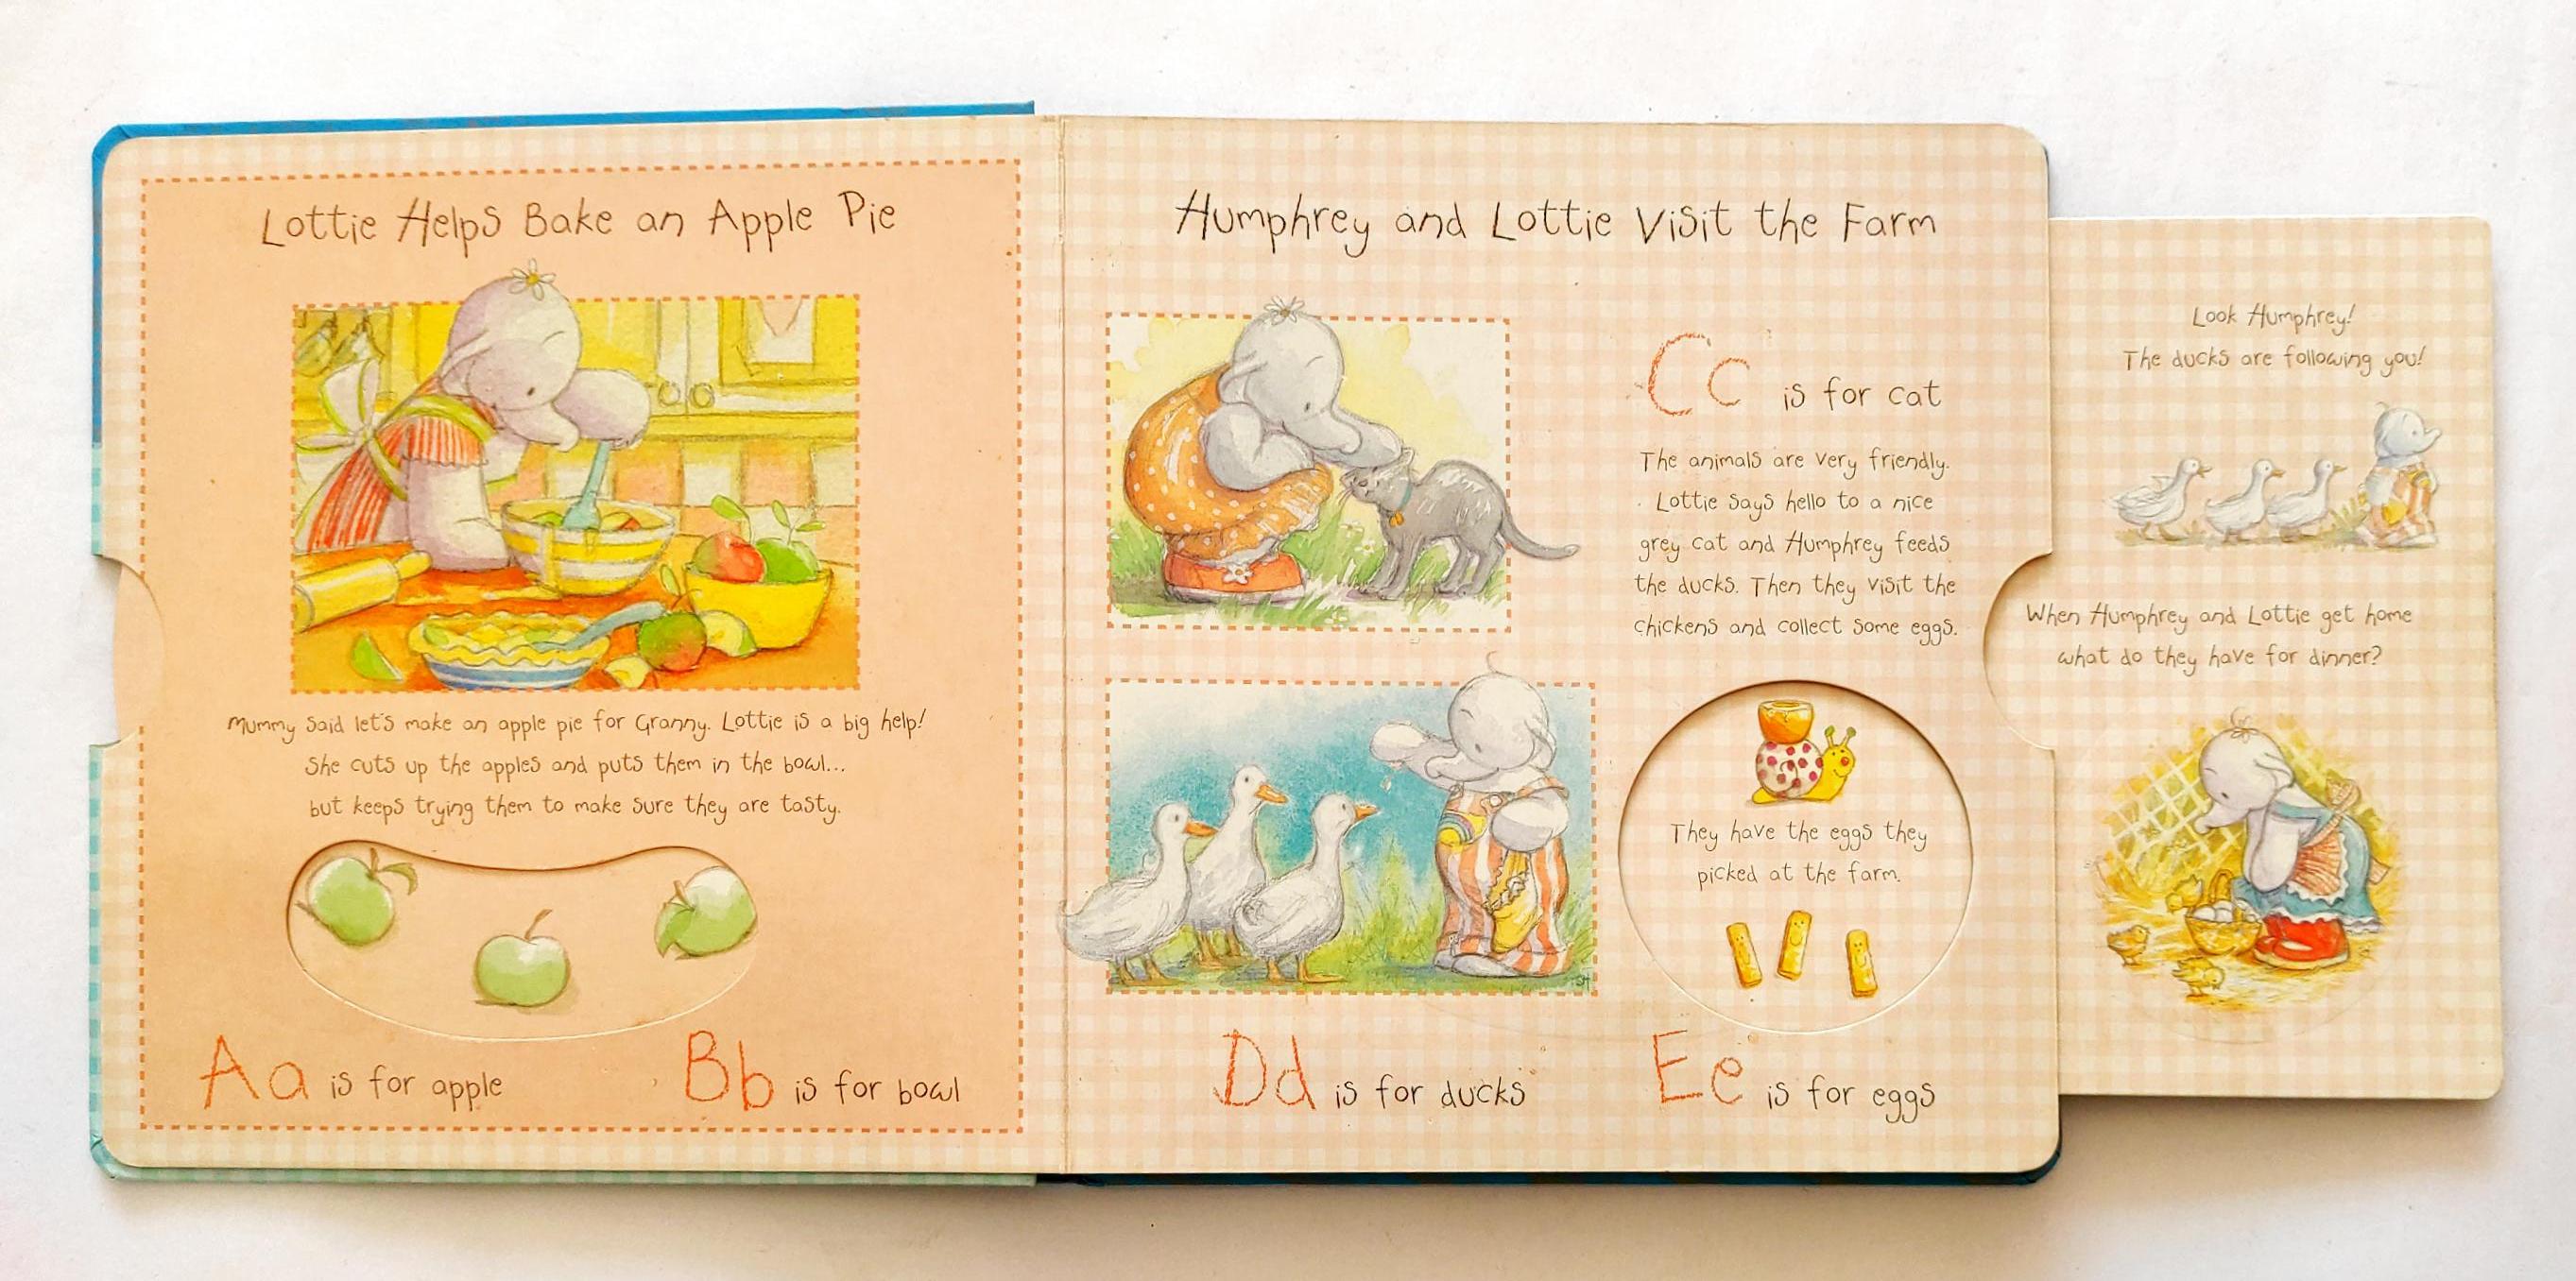 Lottie Helps Bake an Apple Pie
Mummy said let's make an apple pie for Granny. Lottie is a big help!
She cuts up the apples and puts them in the bowl...
but keeps trying them to make sure they are tasty.
Aa is for apple
Bb is for bowl
Humphrey and Lottie Visit the Farm
Cc is for cat
The animals are very friendly.
Lottie says hello to a nice
grey cat and Humphrey feeds
the ducks. Then they visit the
chickens and collect some eggs.
They have the eggs they
picked at the farm.
Dd is for ducks
Ee is for eggs
Look Humphrey!
The ducks are following you!
When Humphrey and Lottie get home
what do they have for dinner?